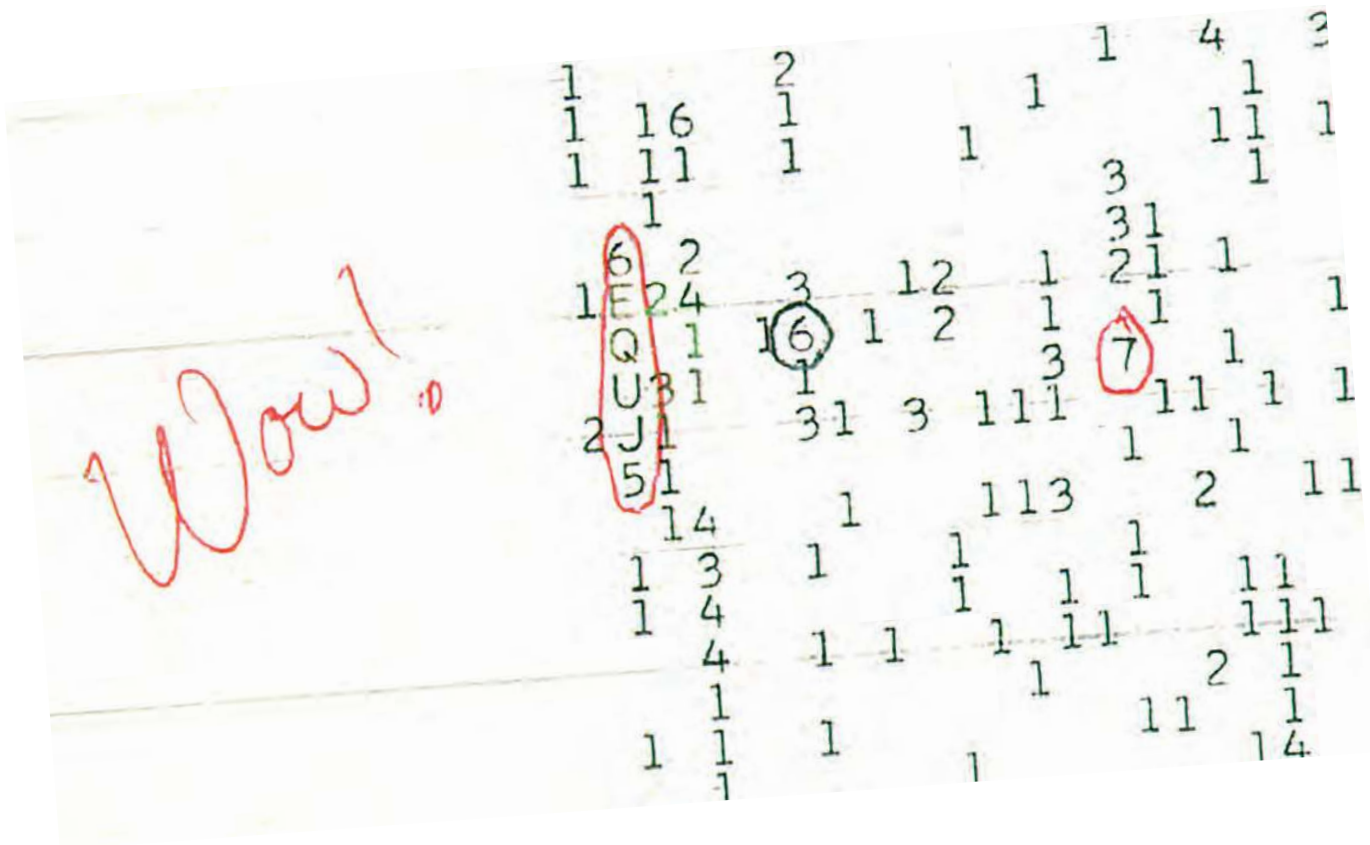 Wow!
1 2 1 4 3
1 16 1 1 1
1 11 1 1 11 1
1 3 1
6 2 3 1
1 E 2 4 3 1 2 1 2 1 1
Q 1 1 6 1 2 1 1 1
U 3 1 1 3 7 1
2 J 1 3 1 3 1 1 1 1 1 1 1
5 1 1 1
1 4 1 1 1 3 2 1 1
1 3 1 1 1
1 4 1 1 1 1 1
4 1 1 1 1 1 1 1 1
1 1 2 1
1 1 1 1 1 1
1 1 1 4